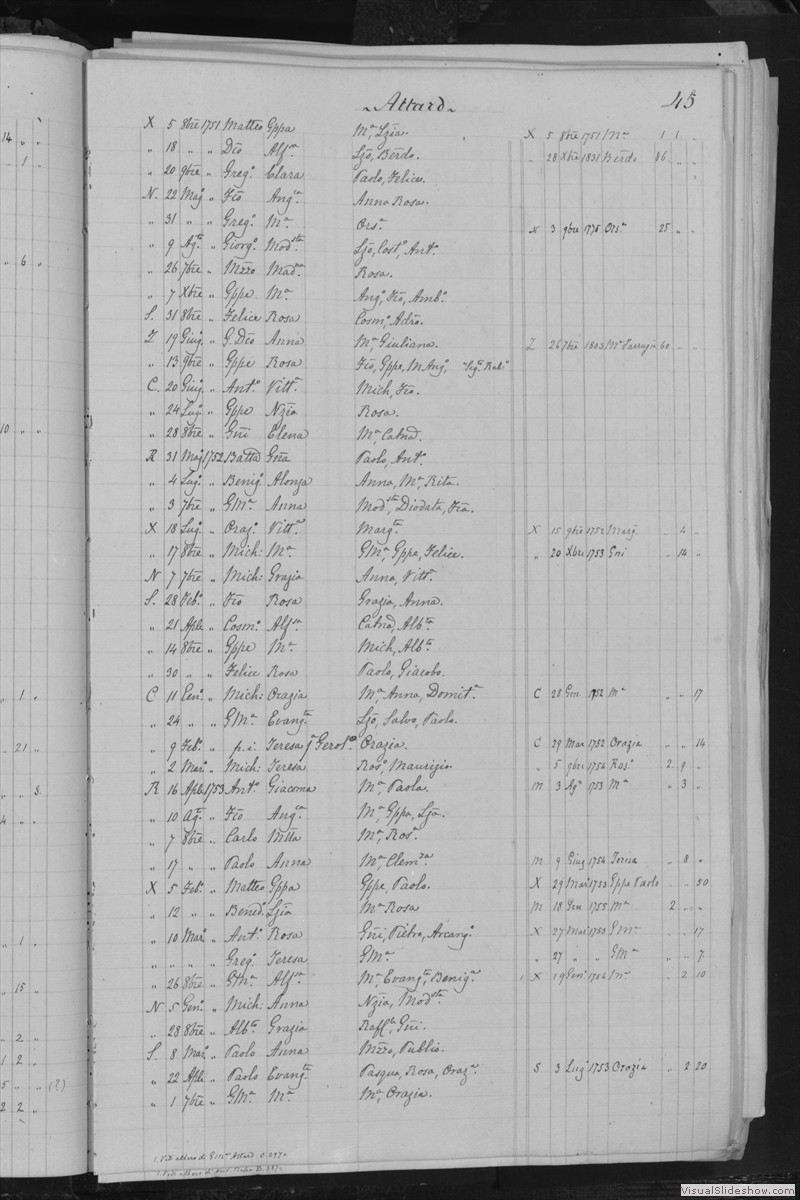 Attard
45
X 5 8bre 1751 Matteo Gppa Mª, Lzia. X 5 8bre 1751 Mª 1 1 „
„ 18 „ „ Dco Alfsa Lzo, Berdo. „ 28 Xbre 1831 Berdo 86 „ „
„ 20 9bre „ Gregº Clara Paolo, Felice.
N. 22 Magº „ Fco Angca Anna Rosa.
„ 31 „ „ Gregº Mª Orsª N 3 9bre 1776 Orsª 25 „ „
„ 9 Agto „ Giorgº Modsta Lzo, Costº, Antº
„ 26 7bre „ Mzzo Madna Rosa.
„ 7 Xbre „ Gppe Mª Angº, Fco, Ambº
S. 31 8bre „ Felice Rosa Cosmº, Adro.
Z 19 Giugº „ G. Dco Anna Mª, Giuliana. Z 26 7bre 1803 Mª Farrugia 60 „ „
„ 13 9bre „ Gppe Rosa Fco, Gppe, M. Angº
C. 20 Giugº „ Antº Vittª Mich, Fco.
„ 24 Lugº „ Gppe Nzia Rosa.
„ 28 8bre „ Gni Elena Mª, Catnd.
R 31 Magº 1752 Batta Gna Paolo, Antº
„ 4 Lugº „ Benigº Alonza Anna, Mª, Rita.
„ 3 7bre „ GMª Anna Modsta, Diodata, Fca.
X 18 Lugº „ Orazº Vittª Margta X 15 9bre 1752 Marg. „ 4 „
„ 17 8bre „ Mich: Mª GMª, Gppe, Felice. „ 20 Xbre 1753 Gni „ 14 „
N 7 7bre „ Mich: Grazia Anna, Vittª
S. 28 Febº „ Fco Rosa Grazia, Anna.
„ 21 Aple „ Cosmº Alfsa Catnd, Albta
„ 14 8bre „ Gppe Mª Mich, Albta
„ 30 „ „ Felice Rosa Paolo, Giacobo.
C 11 Genº „ Mich: Orazia Mª, Anna, Domitª C 28 Gen 1752 Mª „ „ 17
„ 24 „ „ GMª Evangta Lzo, Salvo, Paolo.
„ 9 Febº „ p. i. Teresa Orazia. C 29 Mar 1752 Orazia „ „ 14
„ 2 Marº „ Mich: Teresa Rosº, Maurizia „ 5 9bre 1754 Rosº 2 9 „
R 16 Aple 1753 Antº Giacoma Mª, Paola. m 3 Agº 1753 Mª „ 3 „
„ 10 Agto „ Fco Angca Mª, Gppa, Lza.
„ 7 8bre „ Carlo Mª, Rosª
„ 17 „ „ Paolo Anna Mª, Clemza m 9 Giug 1754 Teresa „ 8 „
X 5 Febº „ Matteo Gppa Gppe, Paolo. X 29 Marº 1753 Gppa Paolo „ „ 50
„ 12 „ „ Benedº Lzia Mª Rosa m 18 Gen 1755 Mª 2 „ „
„ 10 Marº „ Antº Rosa Gni, Pietro, Arcangº X 27 Mar 1753 GMª „ „ 17
„ „ „ „ Gregº Teresa GMª „ 27 „ „ GMª „ „ 7
„ 26 8bre „ GMª Alfsa Mª, Evangta, Benigª 1 X 19 Gen 1754 Mª „ 2 10
N 5 Genº „ Mich: Anna Nzia, Modsta
„ 28 8bre „ Albto Grazia Raflla, Gni.
S. 8 Marº „ Paolo Anna Mzzo, Publio.
„ 22 Aple „ Paolo Evangta Pasqua, Rosa, Orazª S 3 Lugº 1753 Orazia „ 2 20
„ 1 7bre „ GMª Mª Mª, Orazia.
1. Vedi albero di GMª Attard
VisualSlideshow.com